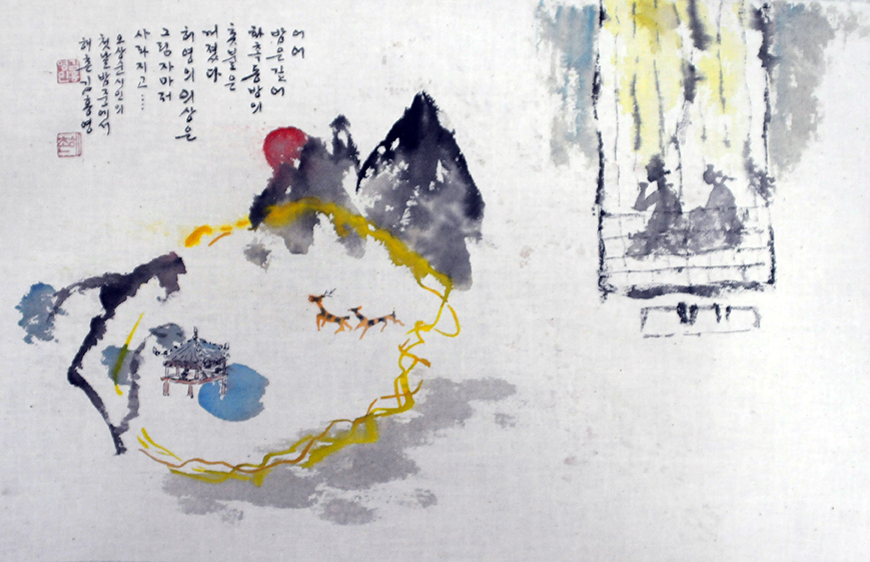 어어
밤은 깊어
화촉동방의
촛불은
꺼졌다
허영의 의상은
그림자마저
사라지고...
오상순 시인의
첫날밤 중에서
해촌 김홍영